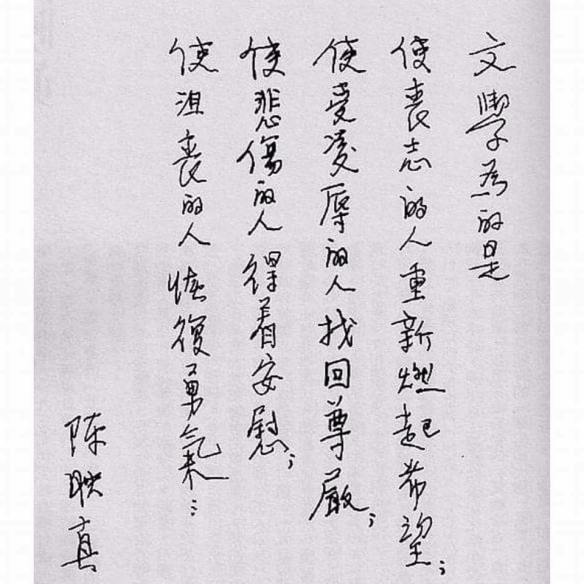 文學為的是
使喪志的人重新燃起希望;
使受凌辱的人找回尊嚴;
使悲傷的人得着安慰;
使沮喪的人恢復勇氣…
陳映真